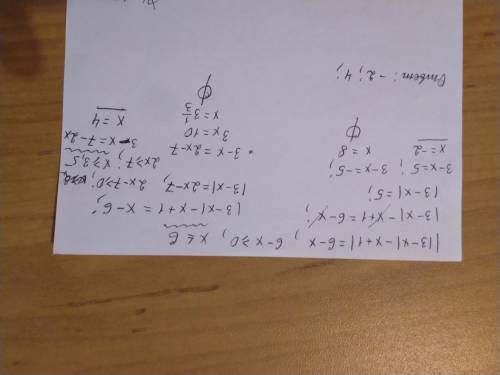 ||3-x|-x+1|=6-x ; 6-x≥0; x≤6
|3-x|-x+1=6-x;
|3-x|=5;
3-x=5; 3-x=-5;
x=-2 x=8
ϕ
|3-x|-x+1=x-6;
|3-x|=2x-7; 2x-7≥0;
2x≥7; x≥3,5
3-x=2x-7 3-x=7-2x
3x=10 x=4
x=3 1/3
ϕ
Ответ: -2; 4;